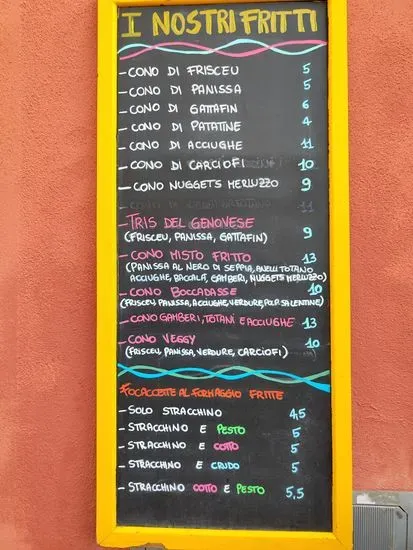 I NOSTRI FRITTI
- CONO DI FRISCEU 5
- CONO DI PANISSA 5
- CONO DI GATTAFIN 6
- CONO DI PATATINE 4
- CONO DI ACCIUGHE 11
- CONO DI CARCIOFI 10
- CONO NUGGETS MERLUZZO 9
11
- TRIS DEL GENOVESE
(FRISCEU, PANISSA, GATTAFIN) 9
- CONO MISTO FRITTO 13
(PANISSA AL NERO DI SEPPIA, ANELLI TOTANO
ACCIUGHE, BACCALÀ, GAMBERI, NUGGETS MERLUZZO)
- CONO BOCCADASSE 10
(FRISCEU, PANISSA, ACCIUGHE, VERDURE, POLP. SALENTINE)
- CONO GAMBERI, TOTANI E ACCIUGHE 13
- CONO VEGGY 10
(FRISCEU, PANISSA, VERDURE, CARCIOFI)
FOCACCETTE AL FORMAGGIO FRITTE
- SOLO STRACCHINO 4,5
- STRACCHINO E PESTO 5
- STRACCHINO E COTTO 5
- STRACCHINO E CRUDO 5
- STRACCHINO COTTO E PESTO 5,5